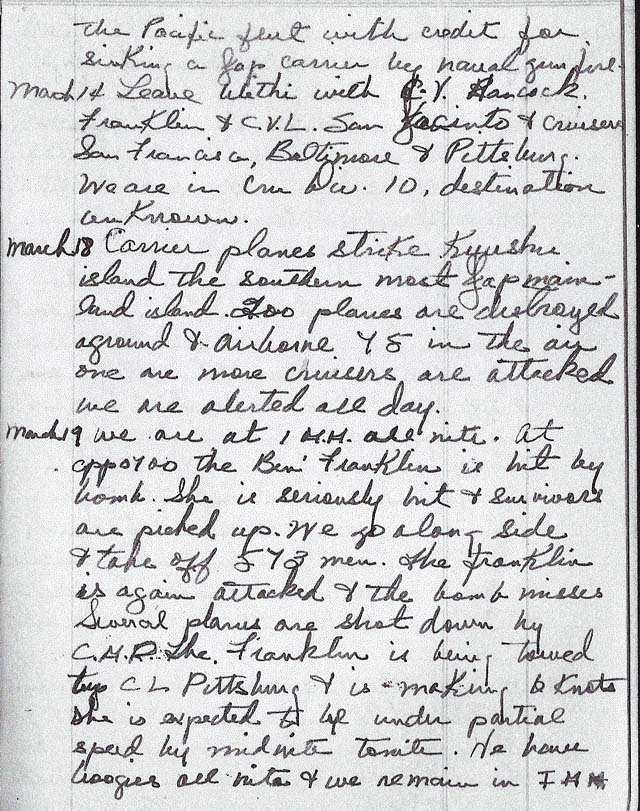 the Pacific fleet with credit for
sinking a Jap carrier by naval gun fire.
March 14 Leave Ulithi with C.V. Hancock.
Franklin & C.V.L. San Jacinto & cruisers
San Francisco, Baltimore & Pittsburg.
We are in Cru Div. 10, destination
unknown.
March 18 Carrier planes strike Kyushu
island the southern most Jap main-
land island. 200 planes are destroyed
aground & airborne 45 in the air
one are more cruisers are attacked
we are alerted all day.
March 19 we are at 1 M.H. all nite. At
app 0700 the Ben Franklin is hit by
bomb. She is seriously hit & survivors
are picked up. We go along side
& take off 573 men. The Franklin
is again attacked & the bomb misses
Several planes are shot down by
C.A.P. The Franklin is being towed
by CL Pittsburg & is making 6 Knots
She is expected to be under partial
speed by midnite tonite. We have
boogies all nite & we remain in